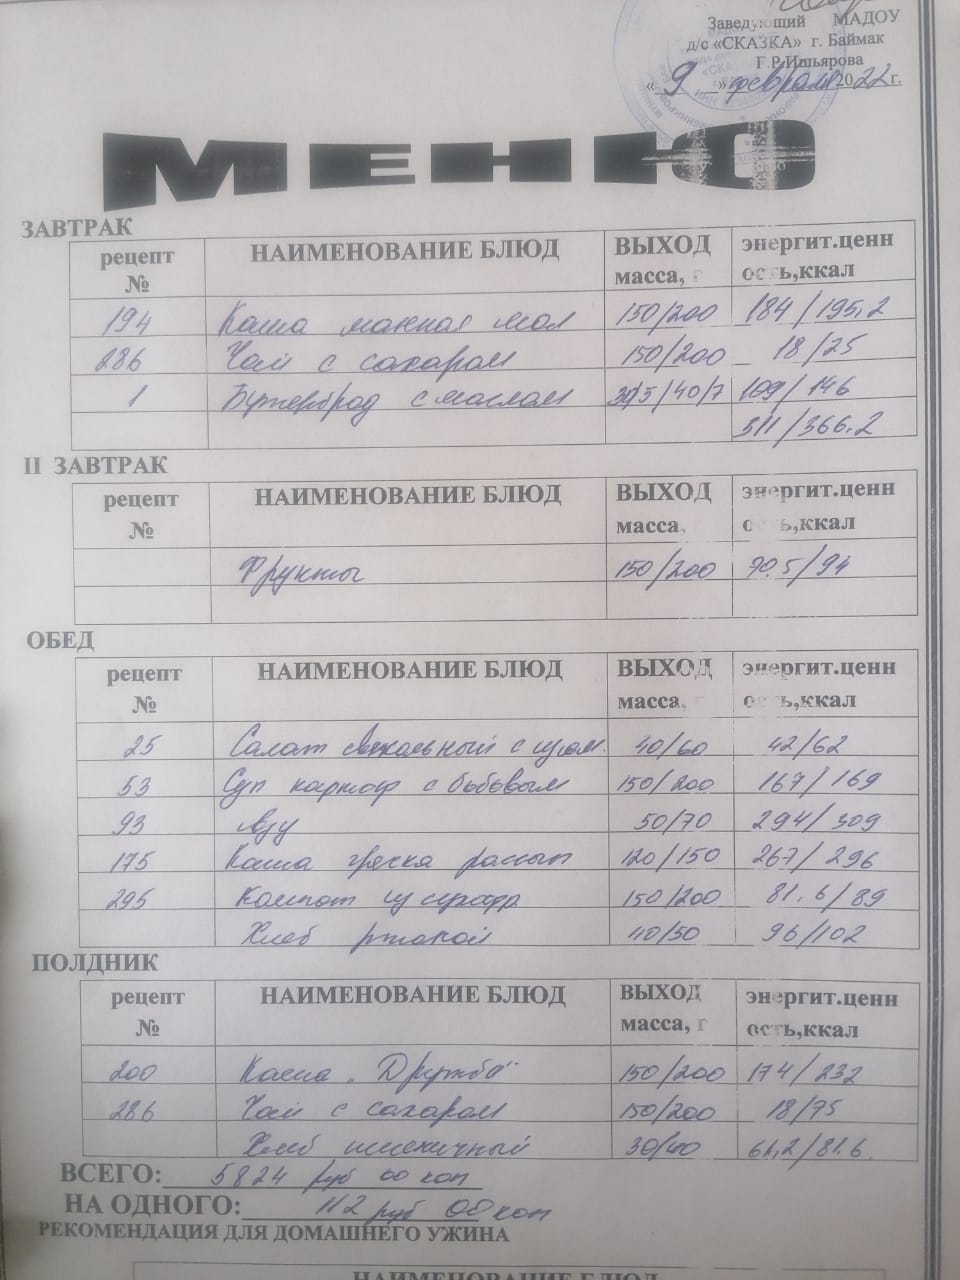 Заведующий МАДОУ
д/с «СКАЗКА» г. Баймак
Г.Р.Ишьярова
« 9 » февраля 2022 г.
МЕНЮ
ЗАВТРАК
рецепт № НАИМЕНОВАНИЕ БЛЮД ВЫХОД масса, г энергит.ценн ость,ккал
194 Каша манная мол 150/200 184/195,2
286 Чай с сахаром 150/200 18/25
1 Бутерброд с маслом 30/5/40/7 109/146
311/366.2
II ЗАВТРАК
рецепт № НАИМЕНОВАНИЕ БЛЮД ВЫХОД масса, энергит.ценн ость,ккал
Фрукты 150/200 70.5/94
ОБЕД
рецепт № НАИМЕНОВАНИЕ БЛЮД ВЫХОД масса, энергит.ценн ость,ккал
25 Салат свекольный с изюм. 40/60 42/62
53 Суп картоф с бобовым 150/200 167/169
93 Азу 50/70 294/309
175 Каша гречка рассып 120/150 267/296
295 Компот из сухофр 150/200 81.6/89
Хлеб ржаной 40/50 96/102
ПОЛДНИК
рецепт № НАИМЕНОВАНИЕ БЛЮД ВЫХОД масса, г энергит.ценн ость,ккал
200 Каша "Дружба" 150/200 174/232
286 Чай с сахаром 150/200 18/75
Хлеб пшеничный 30/40 61,2/81.6.
ВСЕГО: 5824 руб 00 коп
НА ОДНОГО: 112 руб 00 коп
РЕКОМЕНДАЦИЯ ДЛЯ ДОМАШНЕГО УЖИНА
НАИМЕНОВАНИЕ БЛЮД